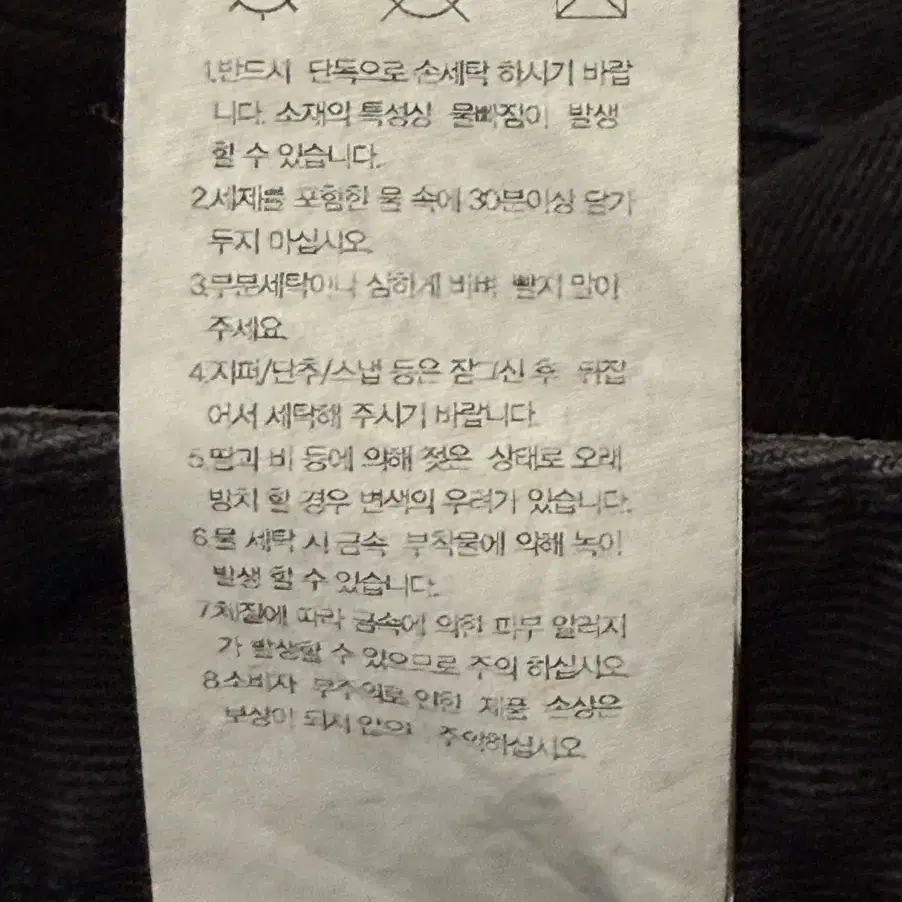 1.반드시 단독으로 손세탁 하시기 바랍
니다. 소재의 특성상 물빠짐이 발생
할 수 있습니다.
2.세제를 포함한 물 속에 30분이상 담가
두지 마십시오.
3.부분세탁이나 심하게 비벼 빨지 말아
주세요.
4.지퍼/단추/스냅 등은 잠그신 후 뒤집
어서 세탁해 주시기 바랍니다.
5.땀과 비 등에 의해 젖은 상태로 오래
방치 할 경우 변색의 우려가 있습니다.
6.물 세탁 시 금속 부착물에 의해 녹이
발생 할 수 있습니다.
7.체질에 따라 금속에 의한 피부 알러지
가 발생할 수 있으므로 주의 하십시오
8.소비자 부주의로 인한 제품 손상은
보상이 되지 않으 주의하십시오